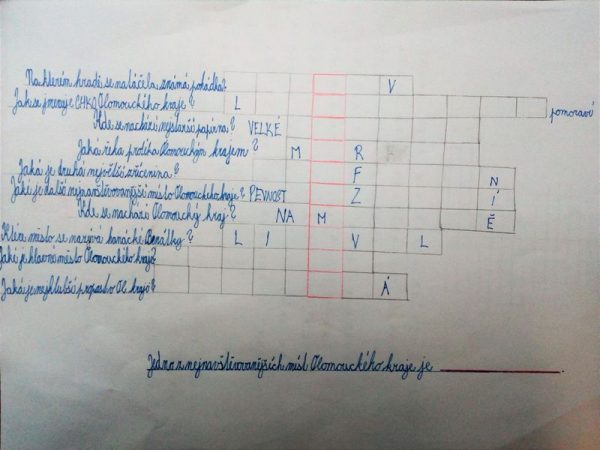 Na kterém hradě se natáčela známá pohádka? V
Jak se jmenuje CHKO Olomouckého kraje? L pomoraví
Kde se nachází nejstarší papírna? VELKÉ
Jaká řeka protíká Olomouckým krajem? M R
Jaká je druhá největší zřícenina? F N
Jaké je další nejnavštěvovanější místo Olomouckého kraje? PEVNOST Z Í
Kde se nachází Olomoucký kraj? NA M Ě
Které město se nazývá hanácké Benátky? L I V L
Jaké je hlavní město Olomouckého kraje?
Jaká je nejhlubší propast Ol. kraje? Á
Jedno z nejnavštěvovanějších míst Olomouckého kraje je